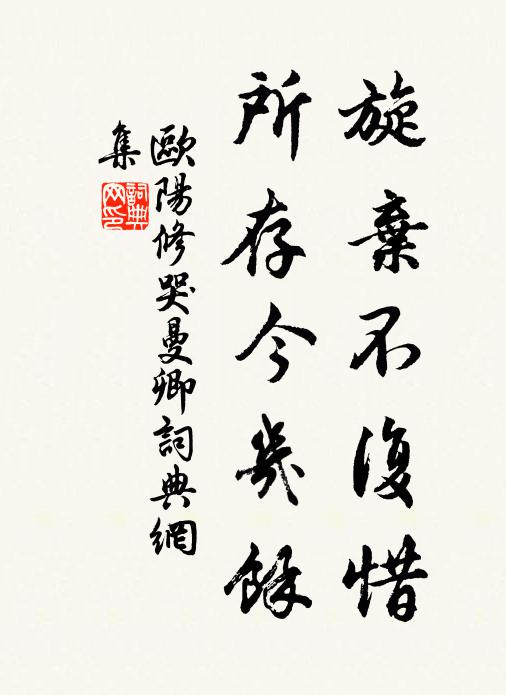 旋棄不復惜
所存今幾餘
歐陽修哭曼卿詞典網
集
詞典网印